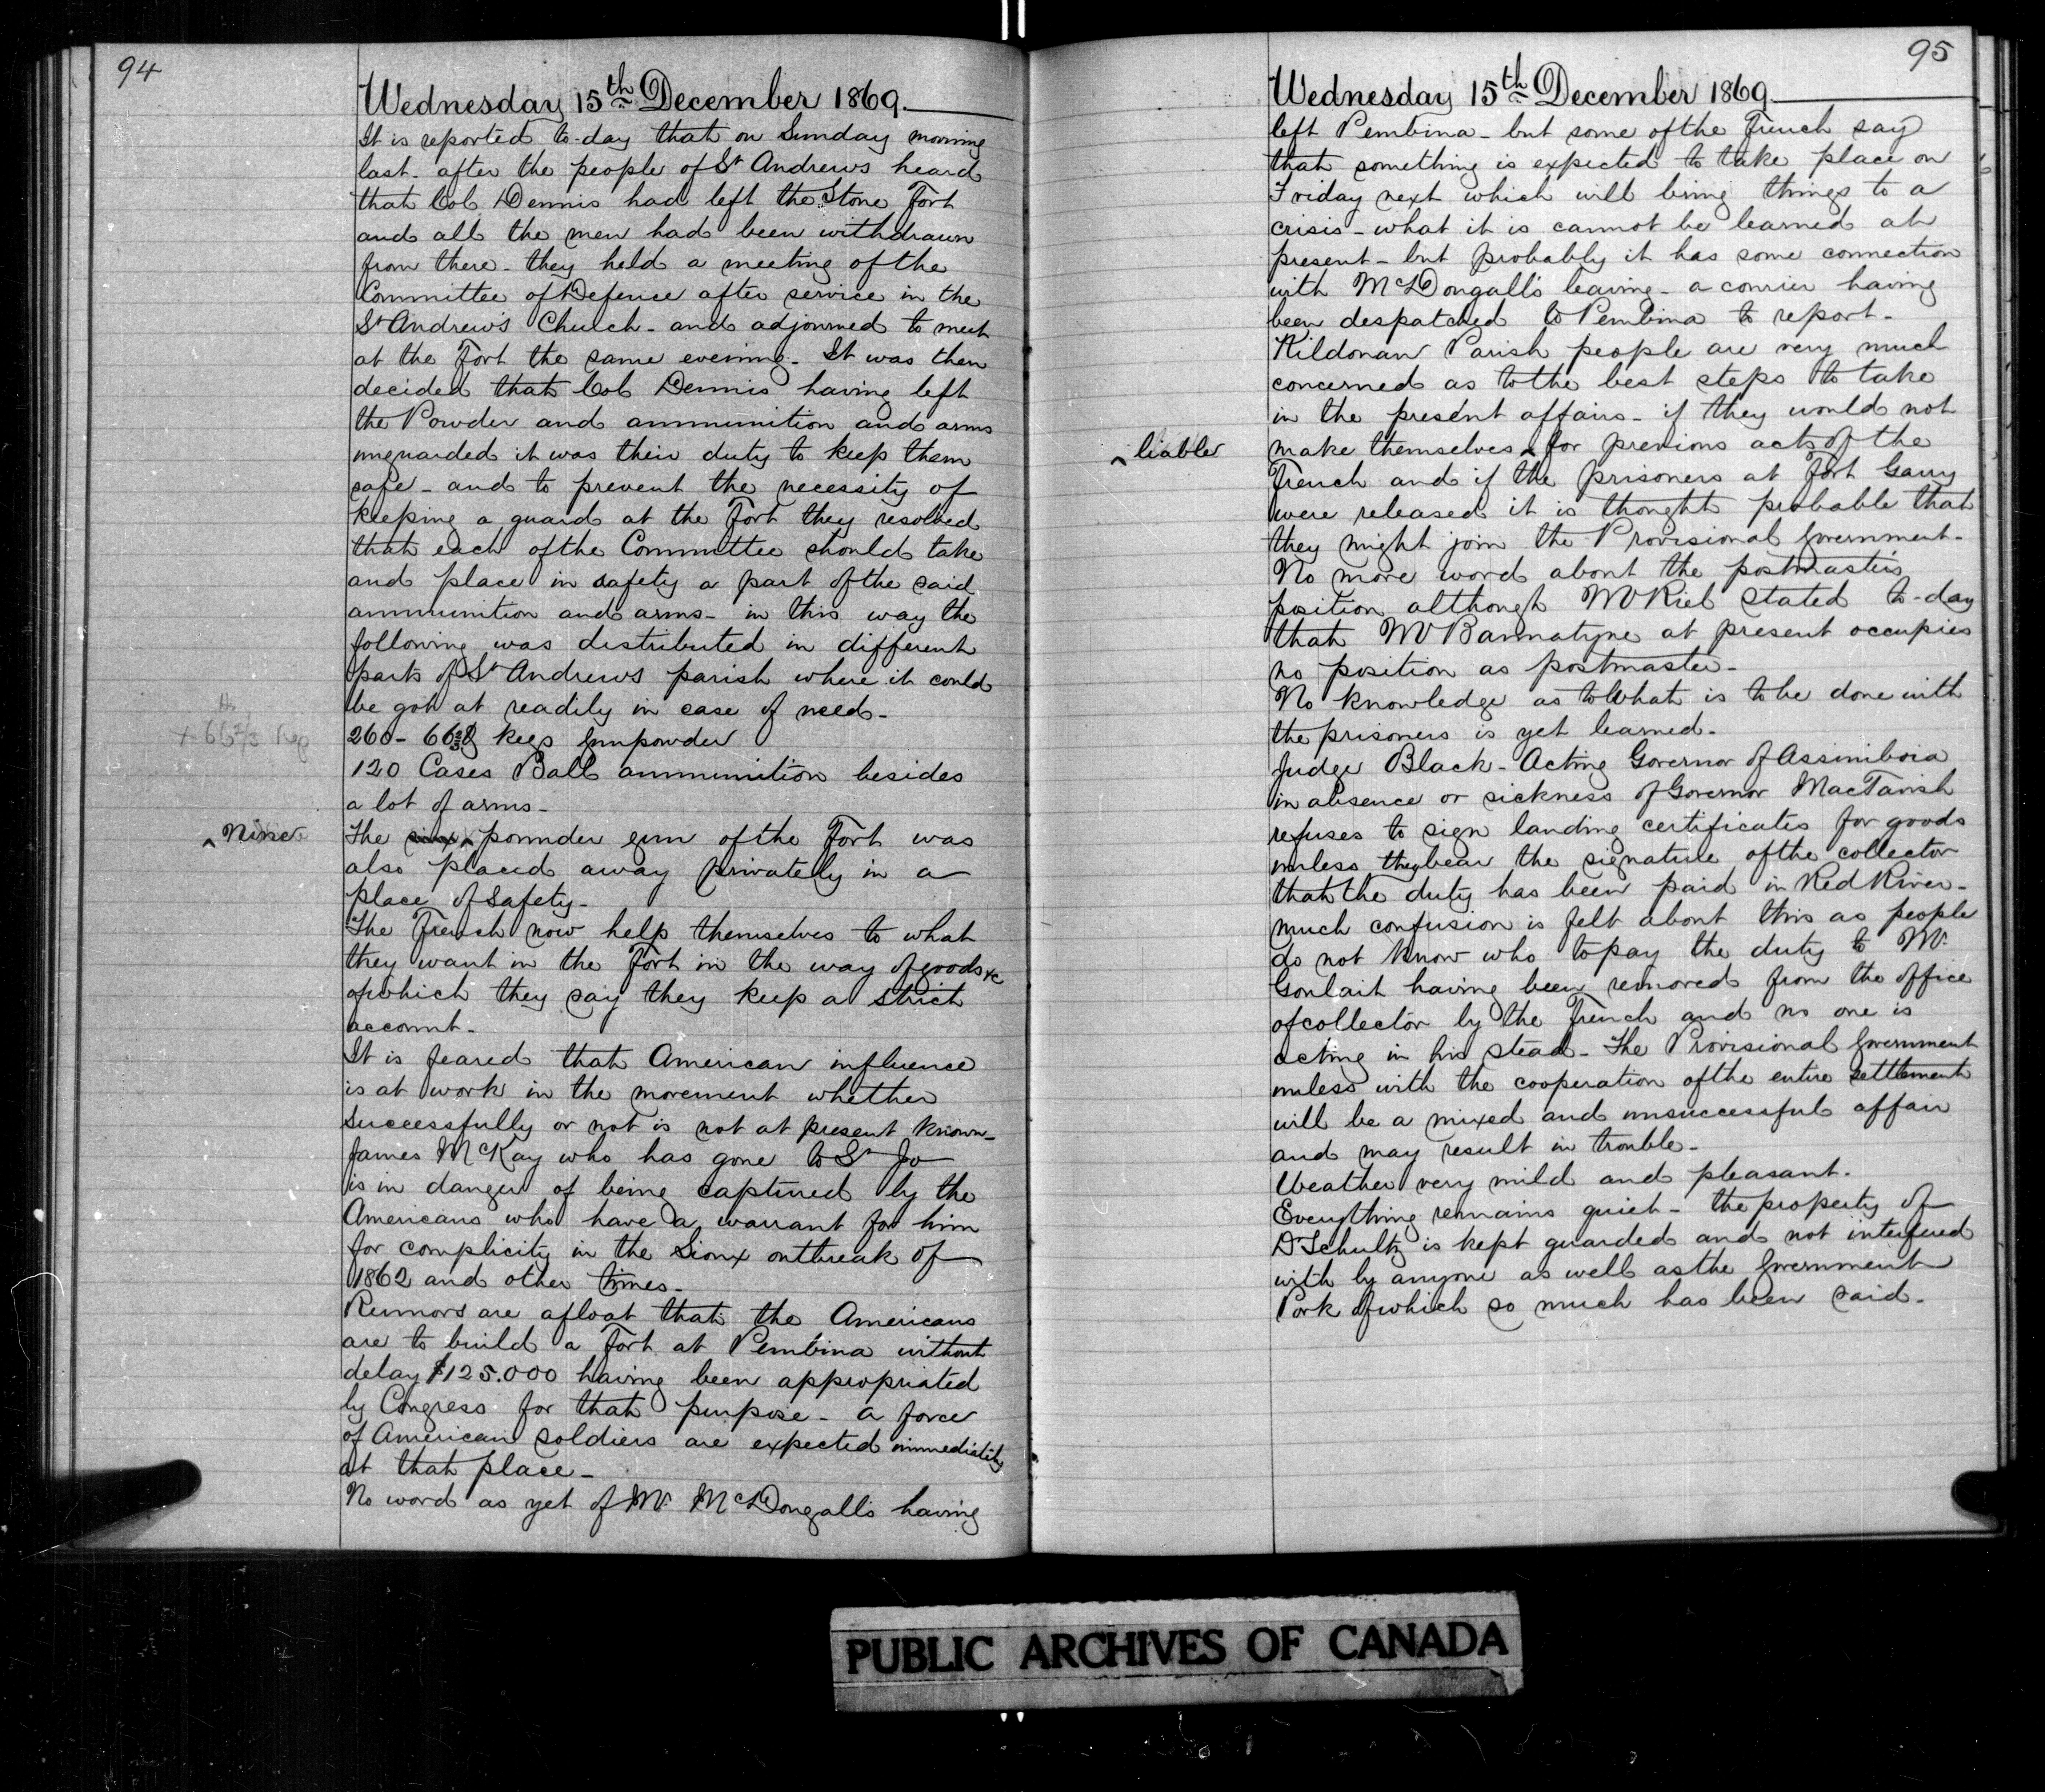 94
Wednesday 15th December 1869.
It is reported to-day that on Sunday morning
last. after the people of St Andrews heard
that Col Dennis had left the Stone Fort
and all the men had been withdrawn
from there - they held a meeting of the
Committee of Defence after service in the
St Andrew's Church - and adjourned to meet
at the Fort the same evening - It was then
decided that Col Dennis having left
the Powder and ammunition and arms
unguarded it was their duty to keep them
safe - and to prevent the necessity of
keeping a guard at the Fort they resolved
that each of the Committee should take
and place in safety a part of the said
ammunition and arms - in this way the
following was distributed in different
parts of St Andrews parish where it could
be got at readily in case of need -
+ 66 2/3 Keg
260 - 66 2/3 kegs gunpowder
120 Cases Ball ammunition besides
a lot of arms -
^ Nine
The ^ pounder gun of the Fort was
also placed away privately in a
place of safety -
The French now help themselves to what
they want in the Fort in the way of goods &c
of which they say they keep a strict
account -
It is feared that American influence
is at work in the movement whether
successfully or not is not at present known -
James McKay who has gone to St Jo
is in danger of being captured by the
Americans who have a warrant for him
for complicity in the Sioux outbreak of
1862 and other times -
Rumors are afloat that the Americans
are to build a Fort at Pembina without
delay $125.000 having been appropriated
by Congress for that purpose - a force
of American soldiers are expected immediately
at that place -
No word as yet of Mr McDougall's having
95
Wednesday 15th December 1869.
left Pembina - but some of the French say
that something is expected to take place on
Friday next which will bring things to a
crisis - what it is cannot be learned at
present - but probably it has some connection
with McDougall's leaving - a courier having
been despatched to Pembina to report -
Kildonan Parish people are very much
concerned as to the best steps to take
in the present affairs - if they would not
^ liable
make themselves ^ for previous acts of the
French and if the prisoners at Fort Garry
were released it is thought probable that
they might join the Provisional Government -
No more word about the postmaster's
position although Mr Riel stated to-day
that Mr Bannatyne at present occupies
no position as postmaster -
No knowledge as to what is to be done with
the prisoners is yet learned -
Judge Black - Acting Governor of Assiniboia
in absence or sickness of Governor MacTavish
refuses to sign landing certificates for goods
unless they bear the signature of the collector
that the duty has been paid in Red River -
much confusion is felt about this as people
do not know who to pay the duty to Mr
Goulait having been removed from the office
of collector by the French and no one is
acting in his stead - The Provisional Government
unless with the cooperation of the entire settlement
will be a mixed and unsuccessful affair
and may result in trouble -
Weather very mild and pleasant -
Everything remains quiet - the property of
Dr Schultz is kept guarded and not interfered
with by anyone as well as the Government
Pork of which so much has been said -
PUBLIC ARCHIVES OF CANADA